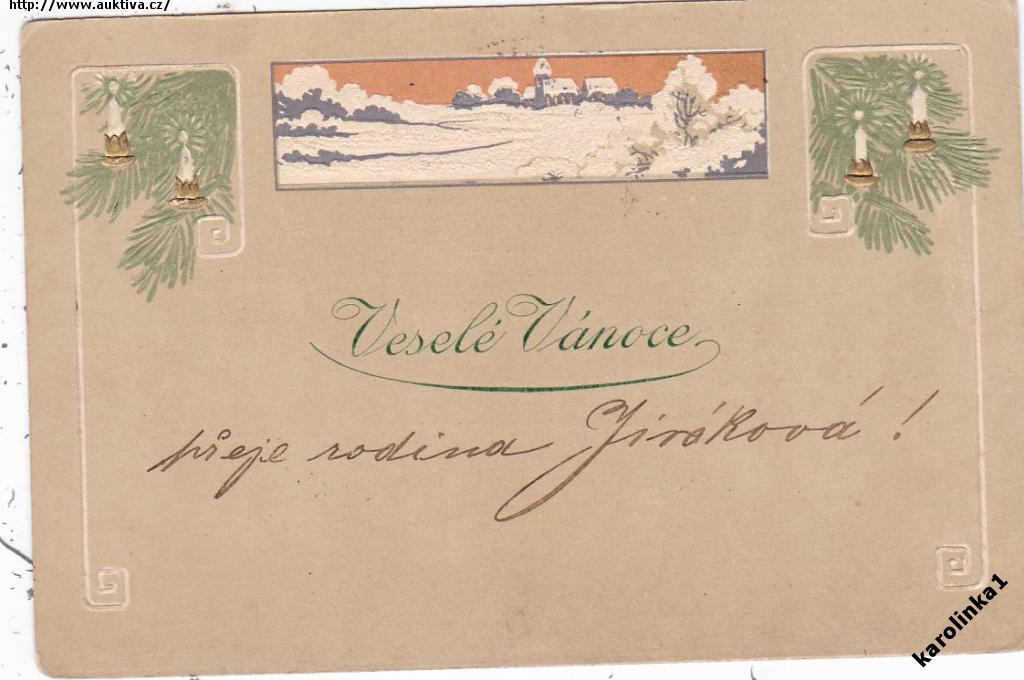 http://www.auktiva.cz/
Veselé Vánoce
přeje rodina Jiráková!
karolinka1